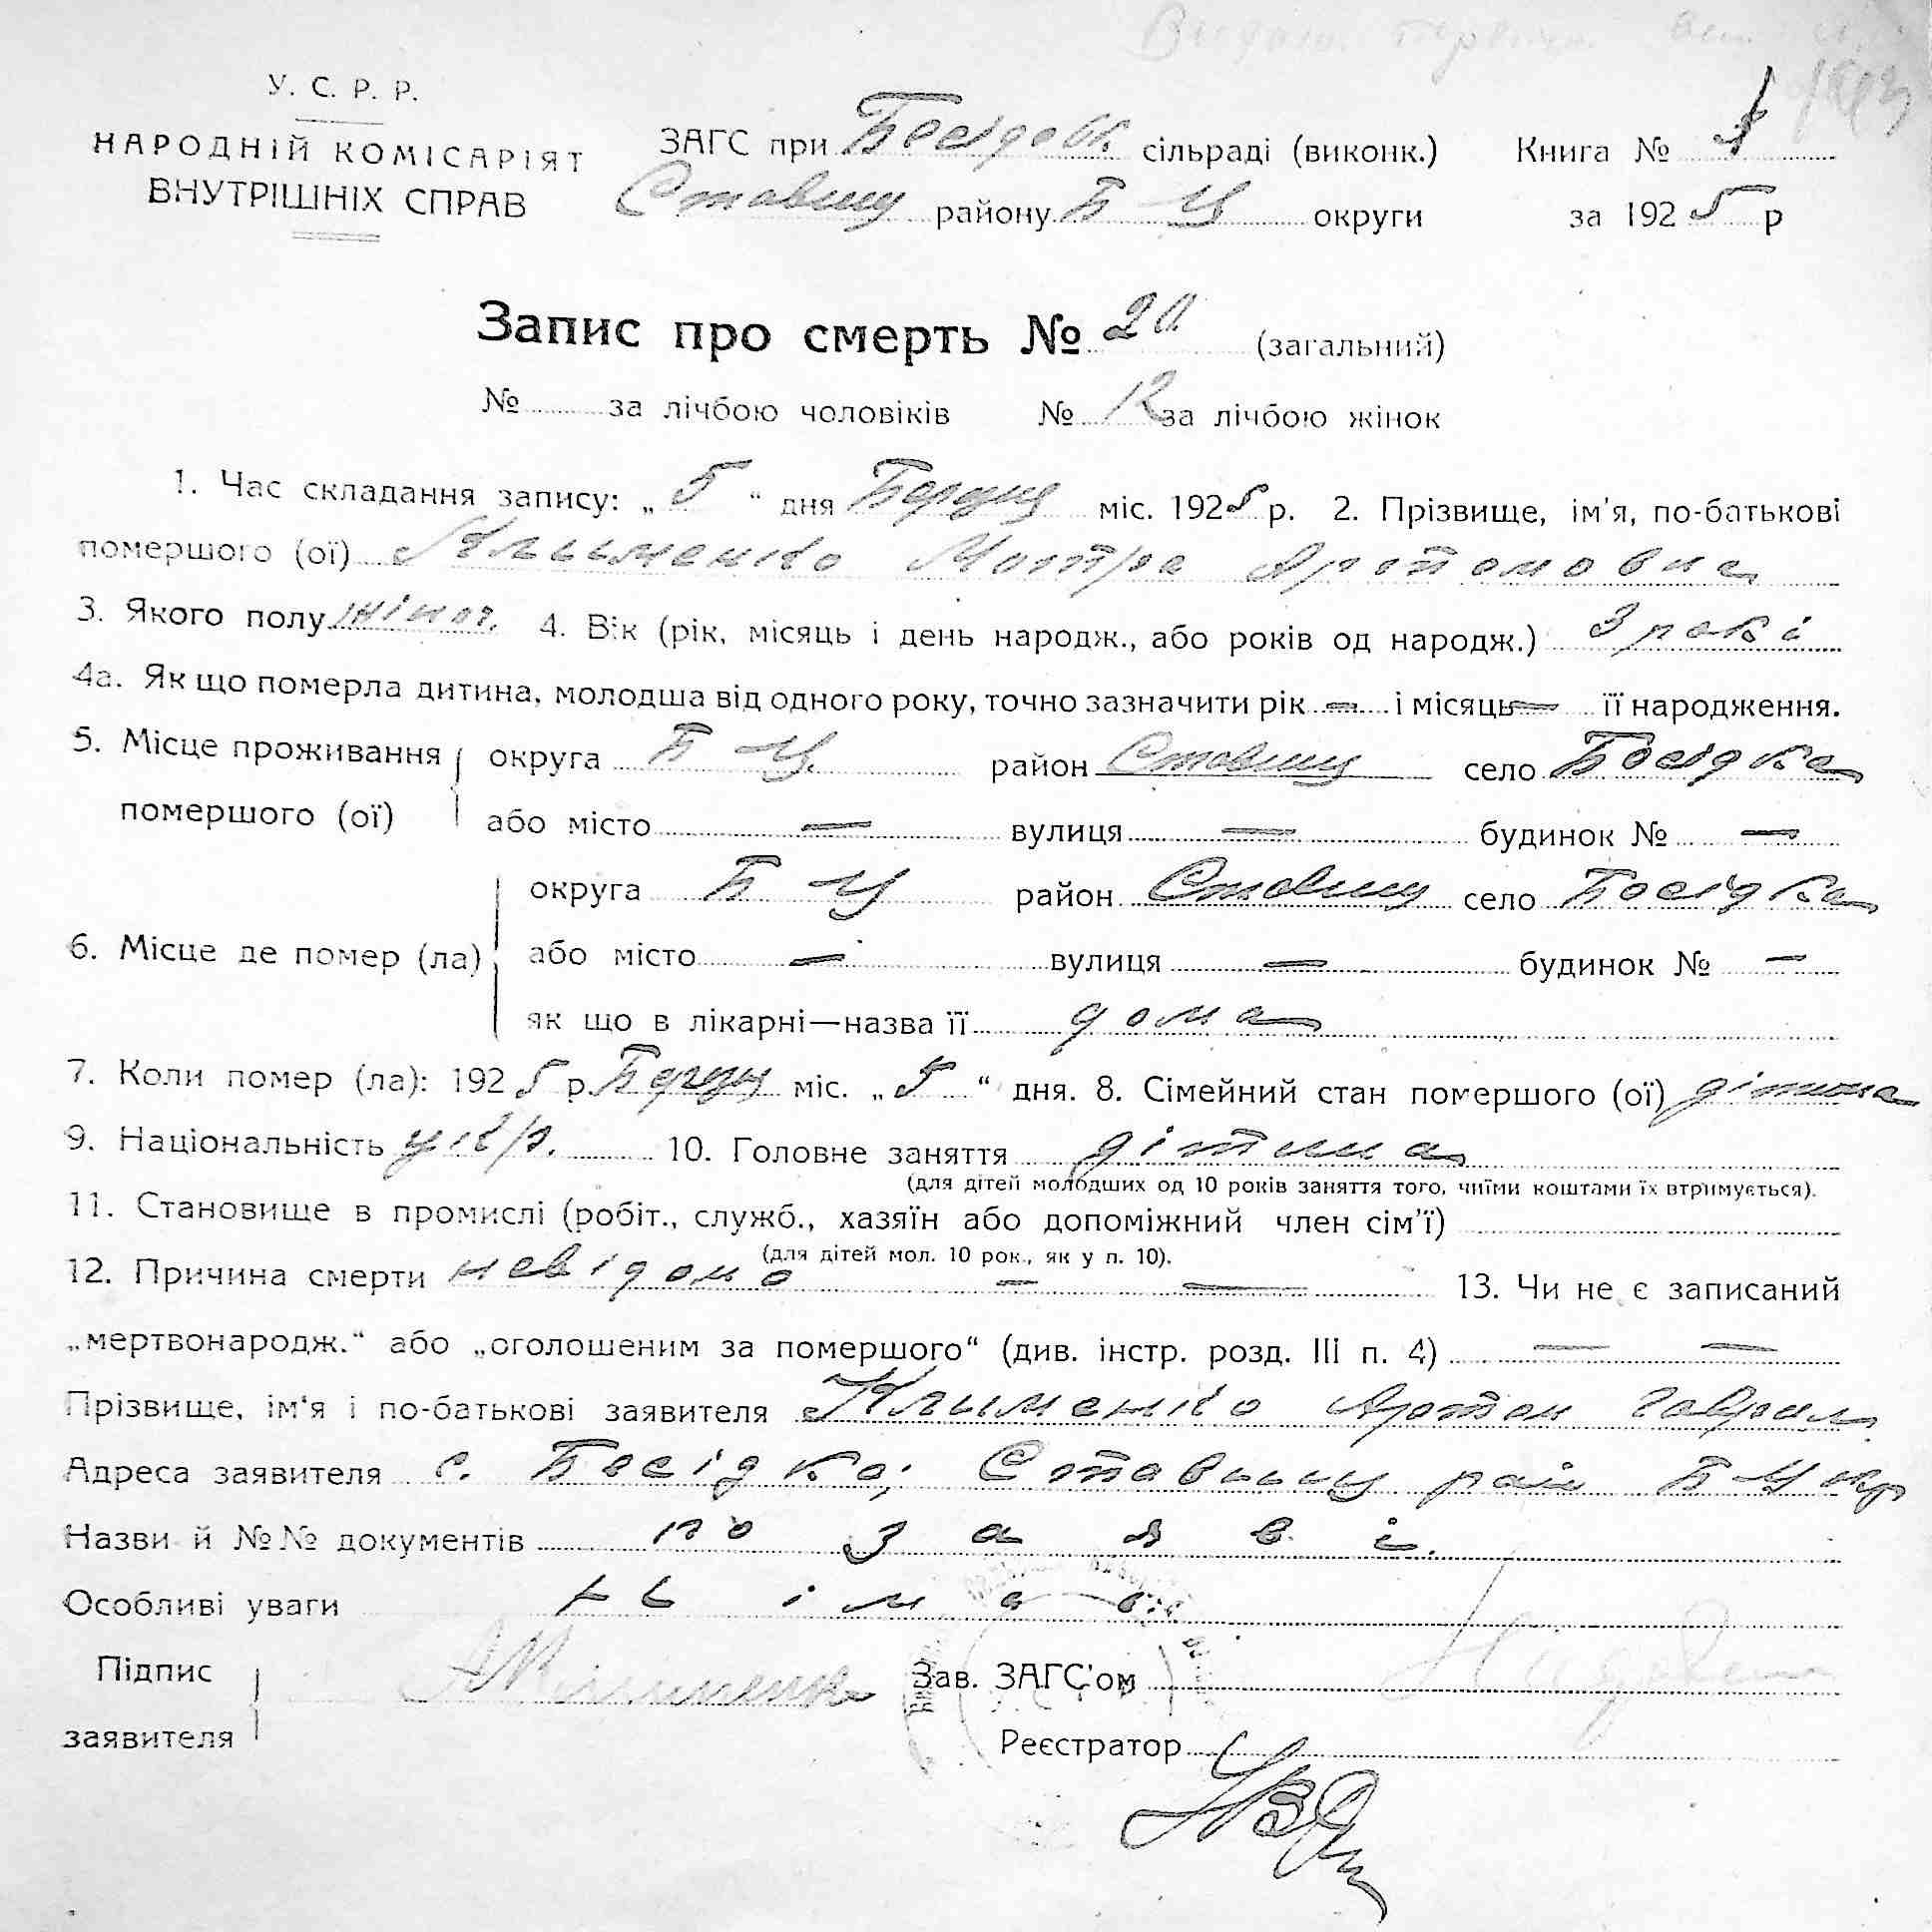 У. С. Р. Р.
НАРОДНІЙ КОМІСАРІЯТ
ВНУТРІШНІХ СПРАВ
ЗАГС при Бесідов. сільраді (виконк.)
Ставищ району Б Ц округи
Книга №
за 1925 р
Запис про смерть № 20 (загальний)
№ за лічбою чоловіків № 12 за лічбою жінок
1. Час складання запису: „ 5 “ дня Березня міс. 1925 р. 2. Прізвище, ім'я, по-батькові
помершого (ої) Клименко Мотря Артомовна
3. Якого полу жіноч. 4. Вік (рік, місяць і день народж., або років од народж.) 3 роки
4а. Як що померла дитина, молодша від одного року, точно зазначити рік — і місяць — її народження.
5. Місце проживання помершого (ої) округа Б Ц. район Ставищ село Бесідка
або місто — вулиця — будинок № —
6. Місце де помер (ла) округа Б Ц район Ставищ село Бесідка
або місто — вулиця — будинок № —
як що в лікарні—назва її дома
7. Коли помер (ла): 1925 р. Березня міс. „ 5 “ дня. 8. Сімейний стан помершого (ої) дітина
9. Національність укр. 10. Головне заняття дітина
(для дітей молодших од 10 років заняття того, чиїми коштами їх втримується).
11. Становище в промислі (робіт., служб., хазяїн або допоміжний член сім'ї)
(для дітей мол. 10 рок., як у п. 10).
12. Причина смерти невідомо — — 13. Чи не є записаний
„мертвонародж.“ або „оголошеним за помершого“ (див. інстр. розд. III п. 4) — —
Прізвище, ім'я і по-батькові заявителя Клименко Артом Гаврил
Адреса заявителя с. Бесідка, Ставищ рай Б Ц окр
Назви й №№ документів по заяві.
Особливі уваги
Підпис
заявителя АКлименко
Зав. ЗАГС'ом
Реєстратор